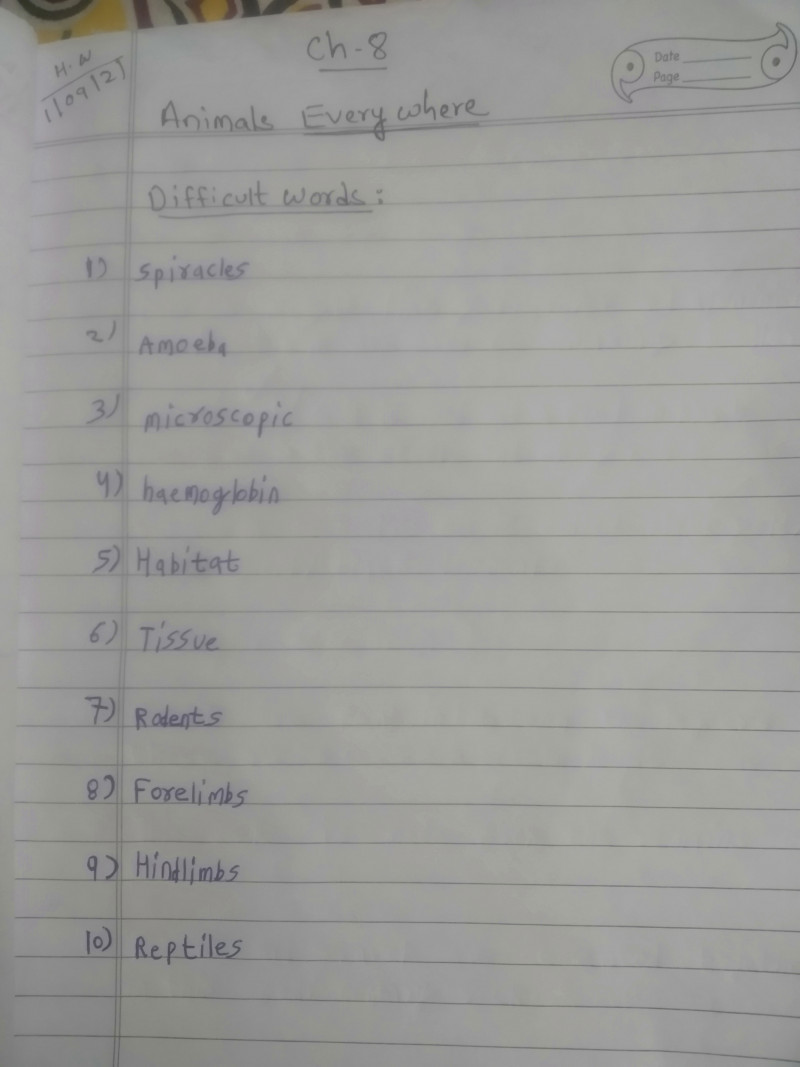 H.W
1/09/21
Ch-8
Date
Page
Animals Every where
Difficult words:
1) spiracles
2) Amoeba
3) microscopic
4) haemoglobin
5) Habitat
6) Tissue
7) Rodents
8) Forelimbs
9) Hindlimbs
10) Reptiles